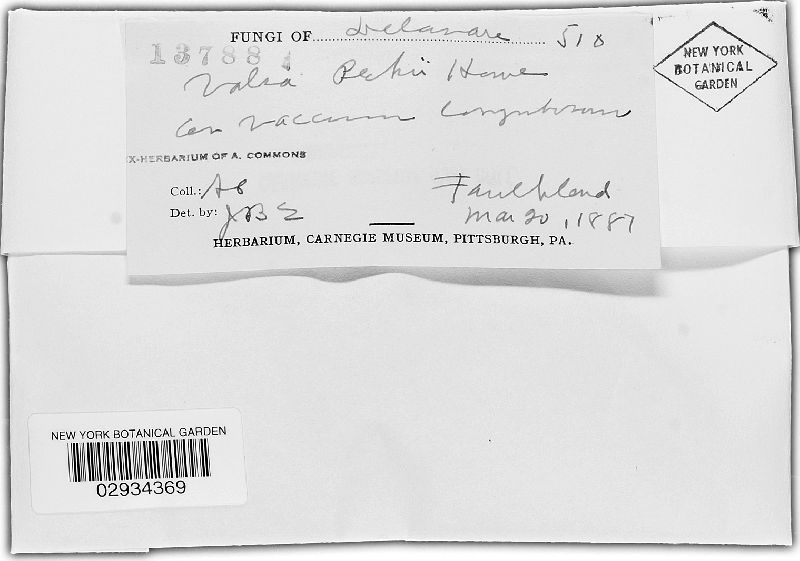 FUNGI OF Delaware 518
13788
Valsa Peckii Howe
on Vaccinium corymbosum
X-HERBARIUM OF A. COMMONS
Coll.: AC Faulkland
Det. by: JBE Mar 20, 1887
HERBARIUM, CARNEGIE MUSEUM, PITTSBURGH, PA.
NEW YORK
BOTANICAL
GARDEN
NEW YORK BOTANICAL GARDEN
02934369